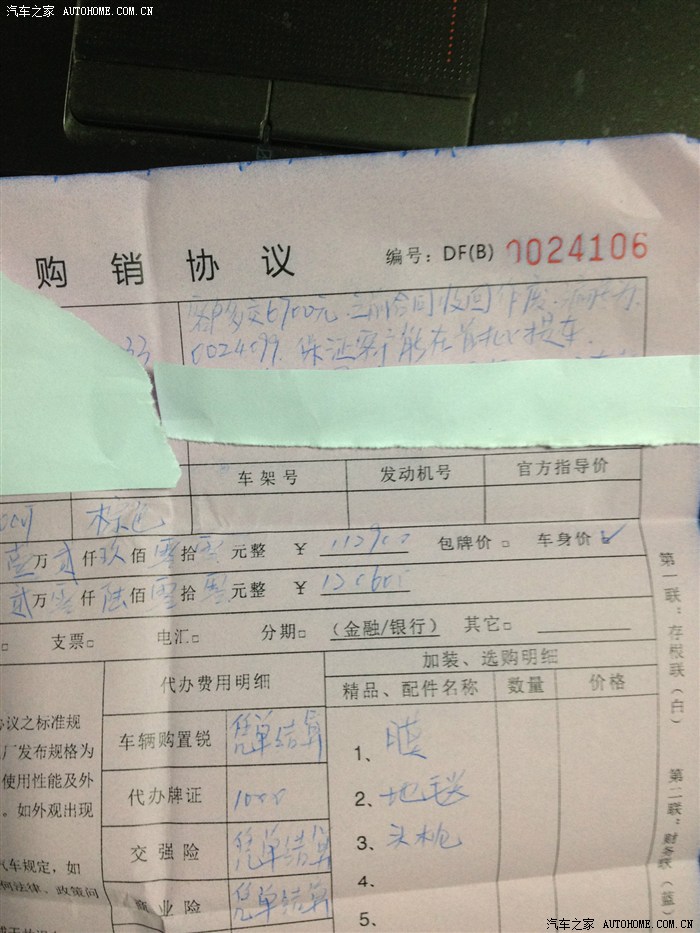 汽车之家 AUTOHOME.COM.CN
购销协议 编号：DF(B) 0024106
客户多交6700元，之前合同收回作废，
33 0024099. 保证客户能在首批提车.
车架号 发动机号 官方指导价
棕色
壹万贰仟玖佰零拾零元整 ￥ 112900 包牌价□ 车身价☑
贰万零仟陆佰零拾零元整 ￥ 120600
□ 支票□ 电汇□ 分期□ (金融/银行) 其它□
代办费用明细 加装、选购明细
精品、配件名称 数量 价格
车辆购置锐 凭单结算 1、膜
代办牌证 1000 2、地毯
交强险 凭单结算 3、头枕
商业险 凭单结算 4、
5、
协议之标准规
厂发布规格为
使用性能及外
。如外观出现
汽车规定，如
何法律、政策问
第一联：存根联（白）
第二联：财务联（蓝）
汽车之家 AUTOHOME.COM.CN